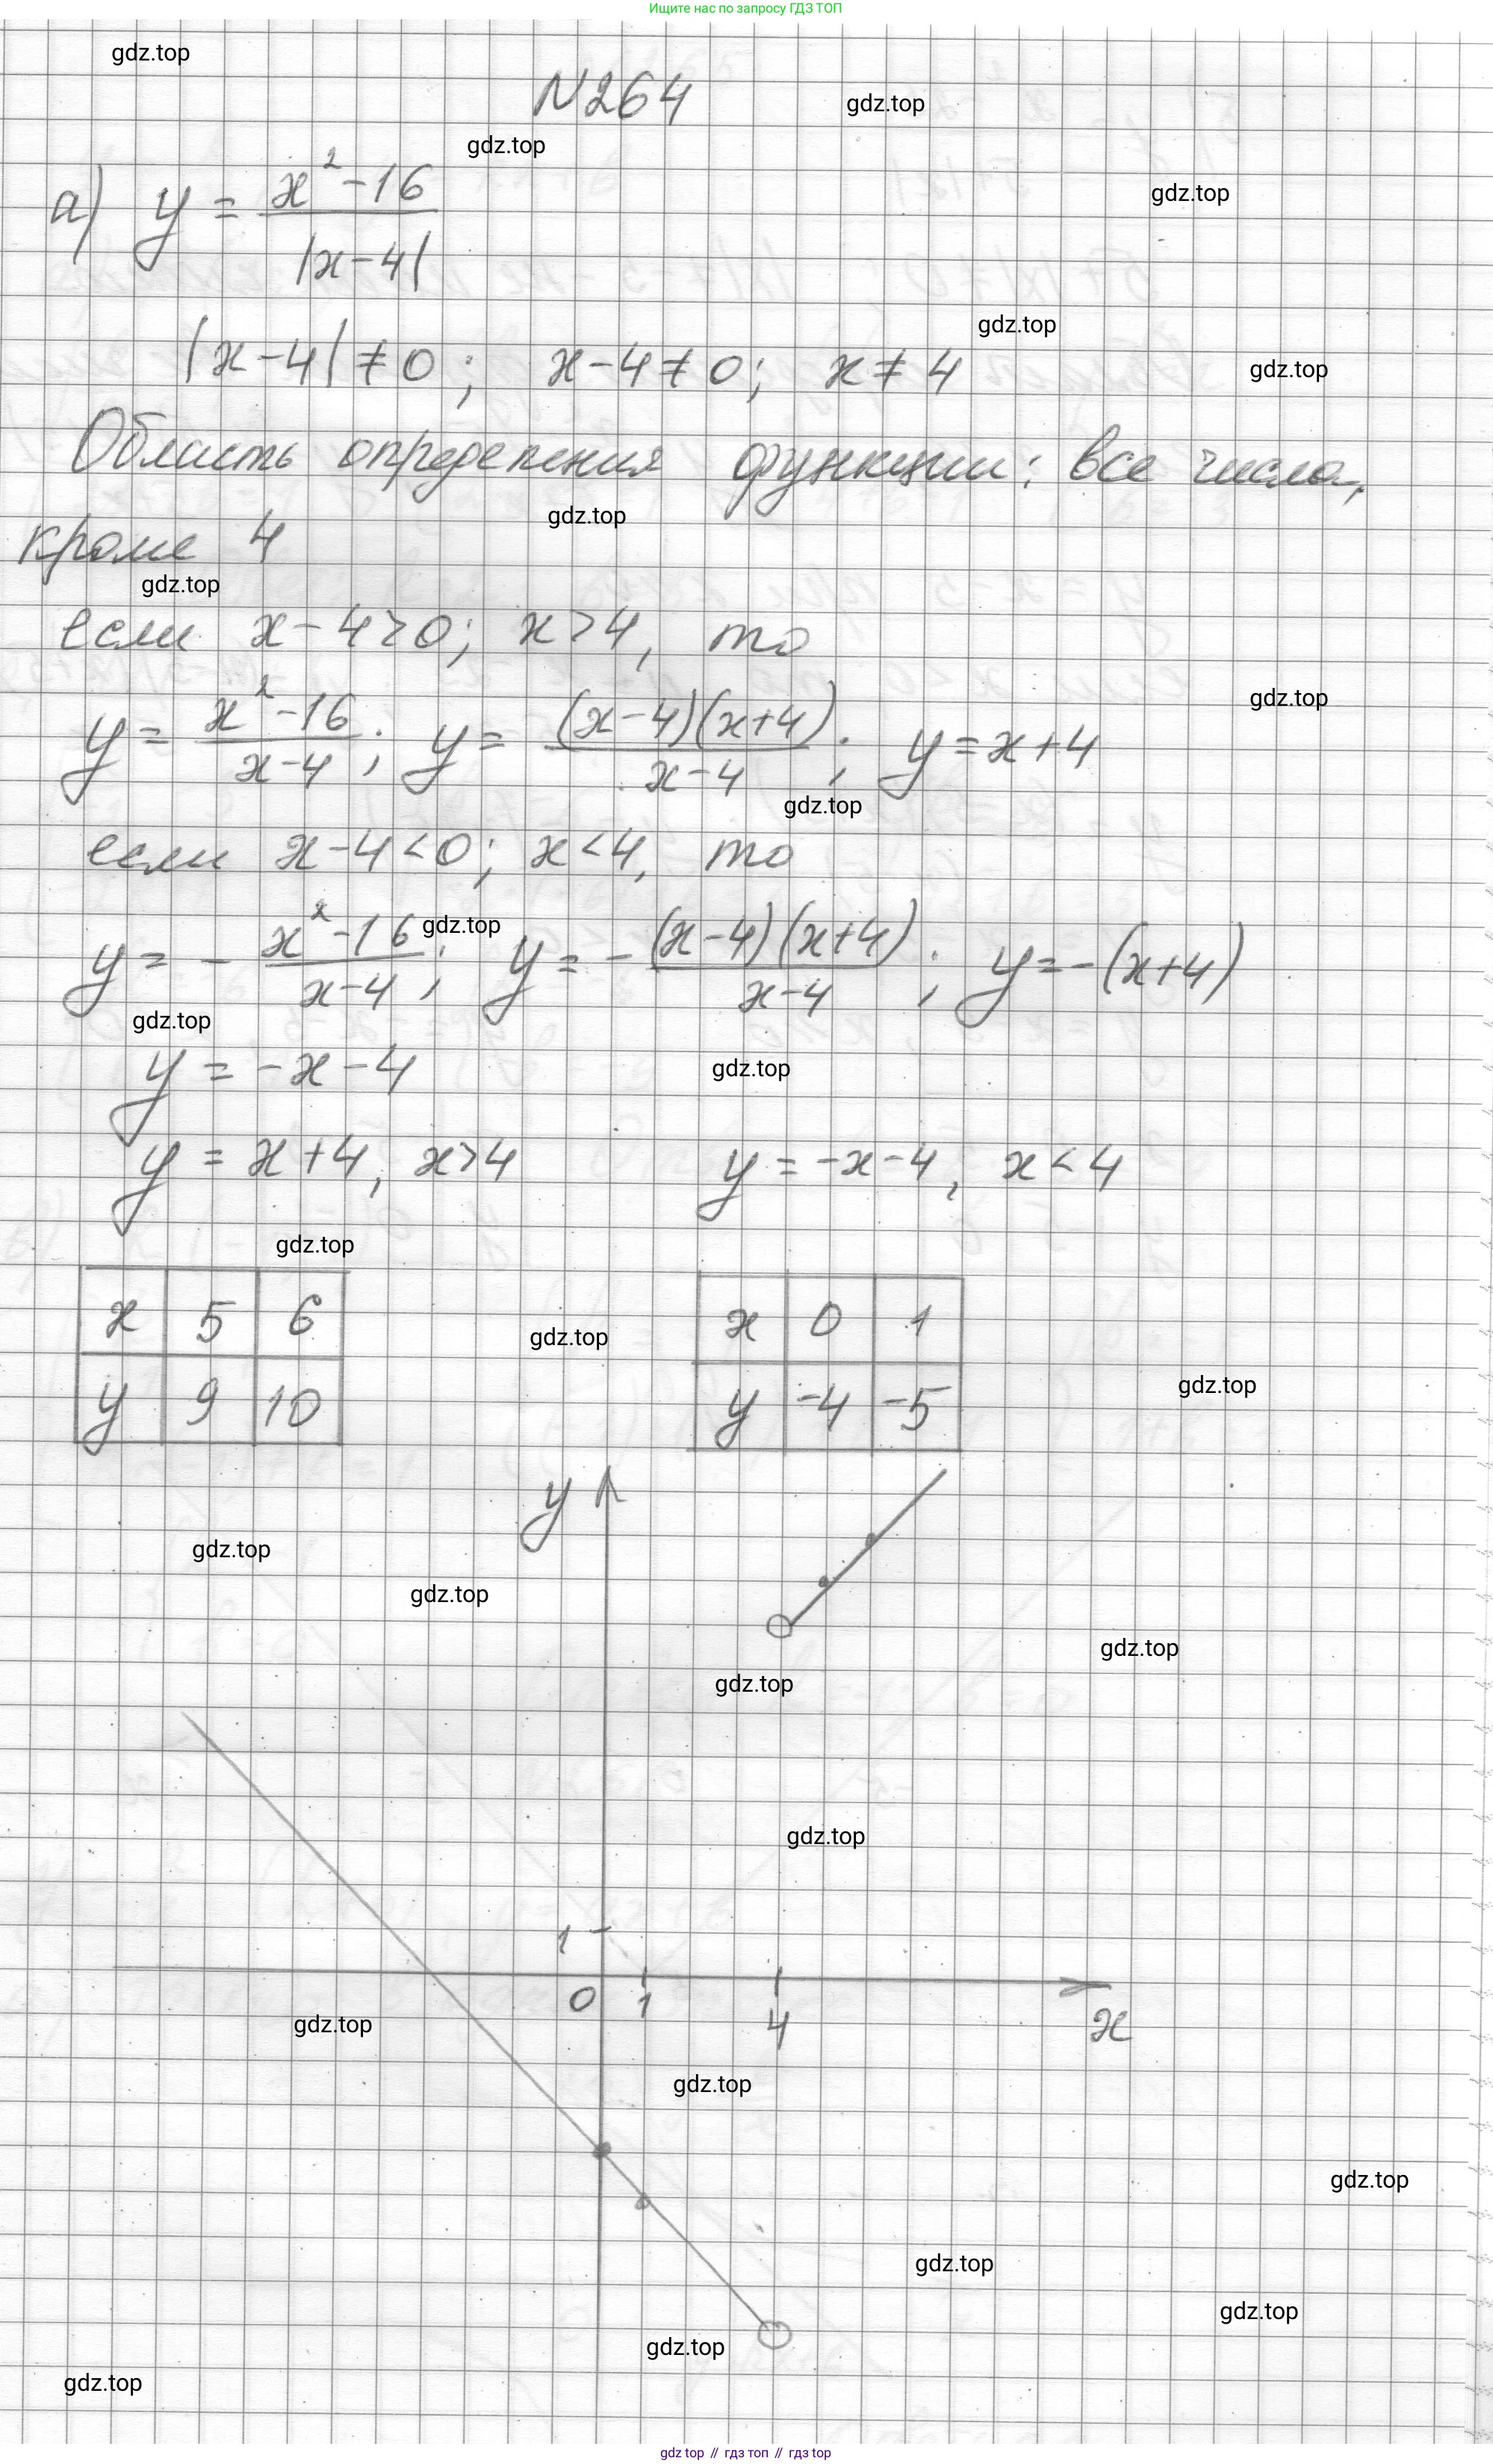 Ищите нас по запросу ГДЗ ТОП
gdz.top
N264
gdz.top
gdz.top
а) y = \frac{x^2-16}{|x-4|}
gdz.top
gdz.top
|x-4| ≠ 0; x-4 ≠ 0; x ≠ 4
gdz.top
Область определения функции: все числа,
gdz.top
кроме 4
gdz.top
если x-4>0; x>4, то
gdz.top
y = \frac{x^2-16}{x-4}; y = \frac{(x-4)(x+4)}{x-4}; y = x+4
gdz.top
если x-4<0; x<4, то
gdz.top
y = -\frac{x^2-16}{x-4}; y = -\frac{(x-4)(x+4)}{x-4}; y = -(x+4)
gdz.top
y = -x-4
gdz.top
y = x+4, x>4 y = -x-4, x<4
gdz.top
x 5 6 x 0 1
gdz.top
gdz.top
y 9 10 y -4 -5
y
gdz.top
gdz.top
gdz.top
gdz.top
gdz.top
1
0 1 4 x
gdz.top
gdz.top
gdz.top
gdz.top
gdz.top
gdz.top
gdz.top
gdz top // гдз топ // gdz top